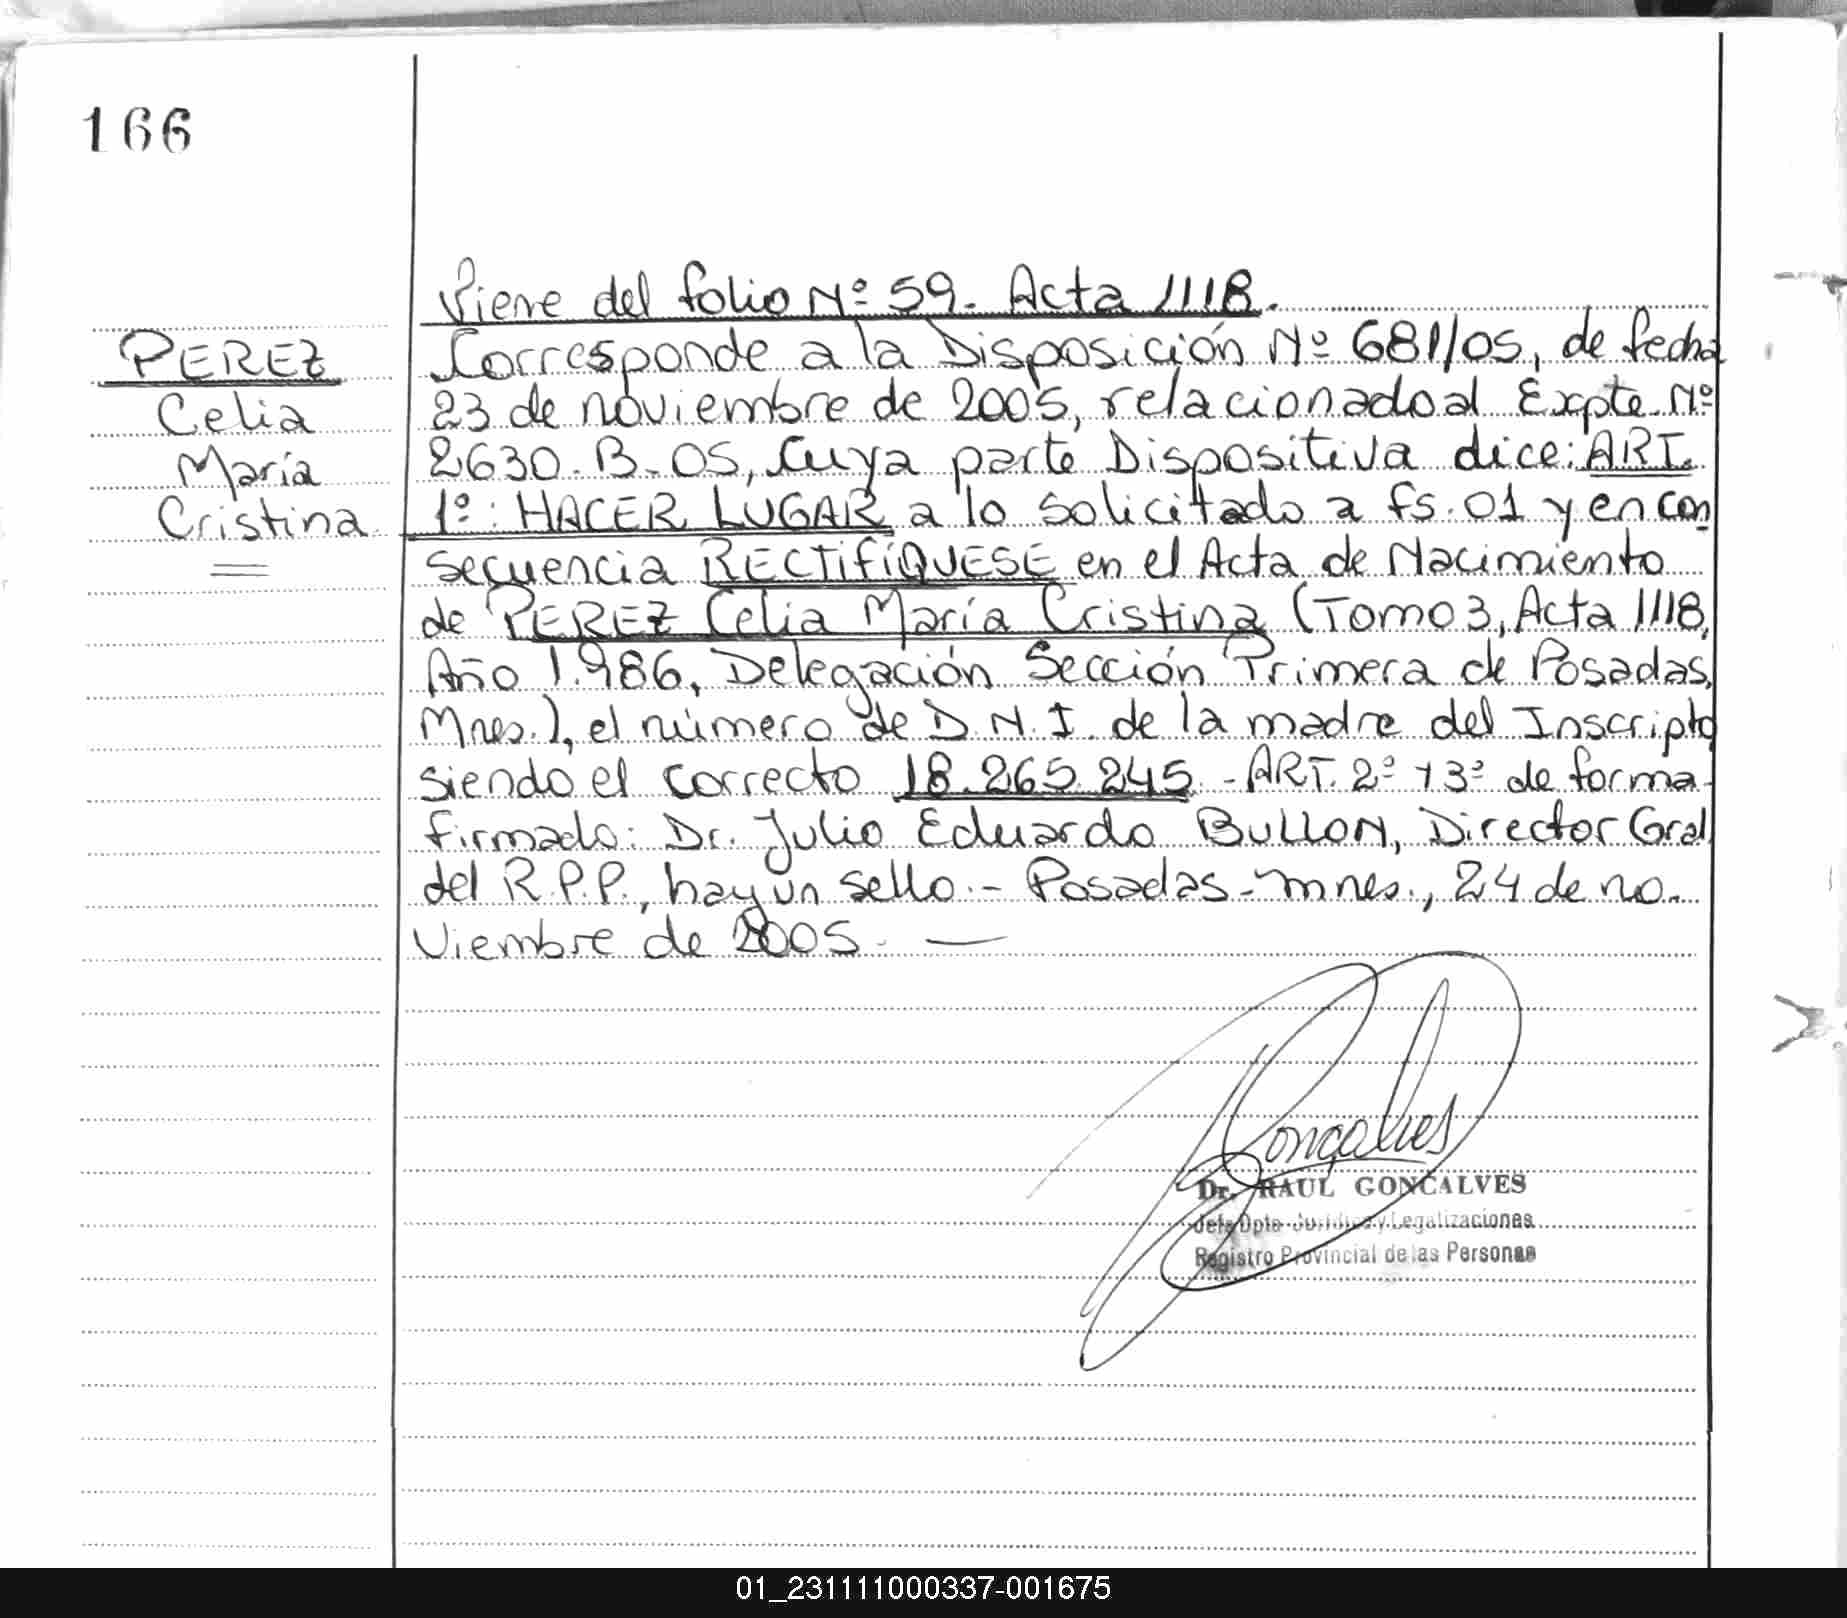 166
Viene del folio Nº 59. Acta 1118.
PEREZ
Celia
María
Cristina
Corresponde a la Disposición Nº 681/05, de fecha
23 de noviembre de 2005, relacionado al Expte. Nº
2630. B-05, Cuya parte Dispositiva dice: ART.
1º: HACER LUGAR a lo solicitado a fs. 01 y en con
secuencia RECTIFÍQUESE en el Acta de Nacimiento
de PEREZ Celia María Cristina (Tomo 3, Acta 1118,
Año 1.986, Delegación Sección Primera de Posadas,
Mnes.), el número de D.N.I. de la madre del Inscripto
siendo el correcto 18.265.245 - ART. 2º y 3º de forma -
firmado: Dr. Julio Eduardo BULLON, Director Gral
del R.P.P., hay un sello.- Posadas-Mnes., 24 de no-
viembre de 2005. —
Goncalves
Dr. RAUL GONCALVES
Jefe Dpto Jurídico y Legalizaciones
Registro Provincial de las Personas
01_231111000337-001675